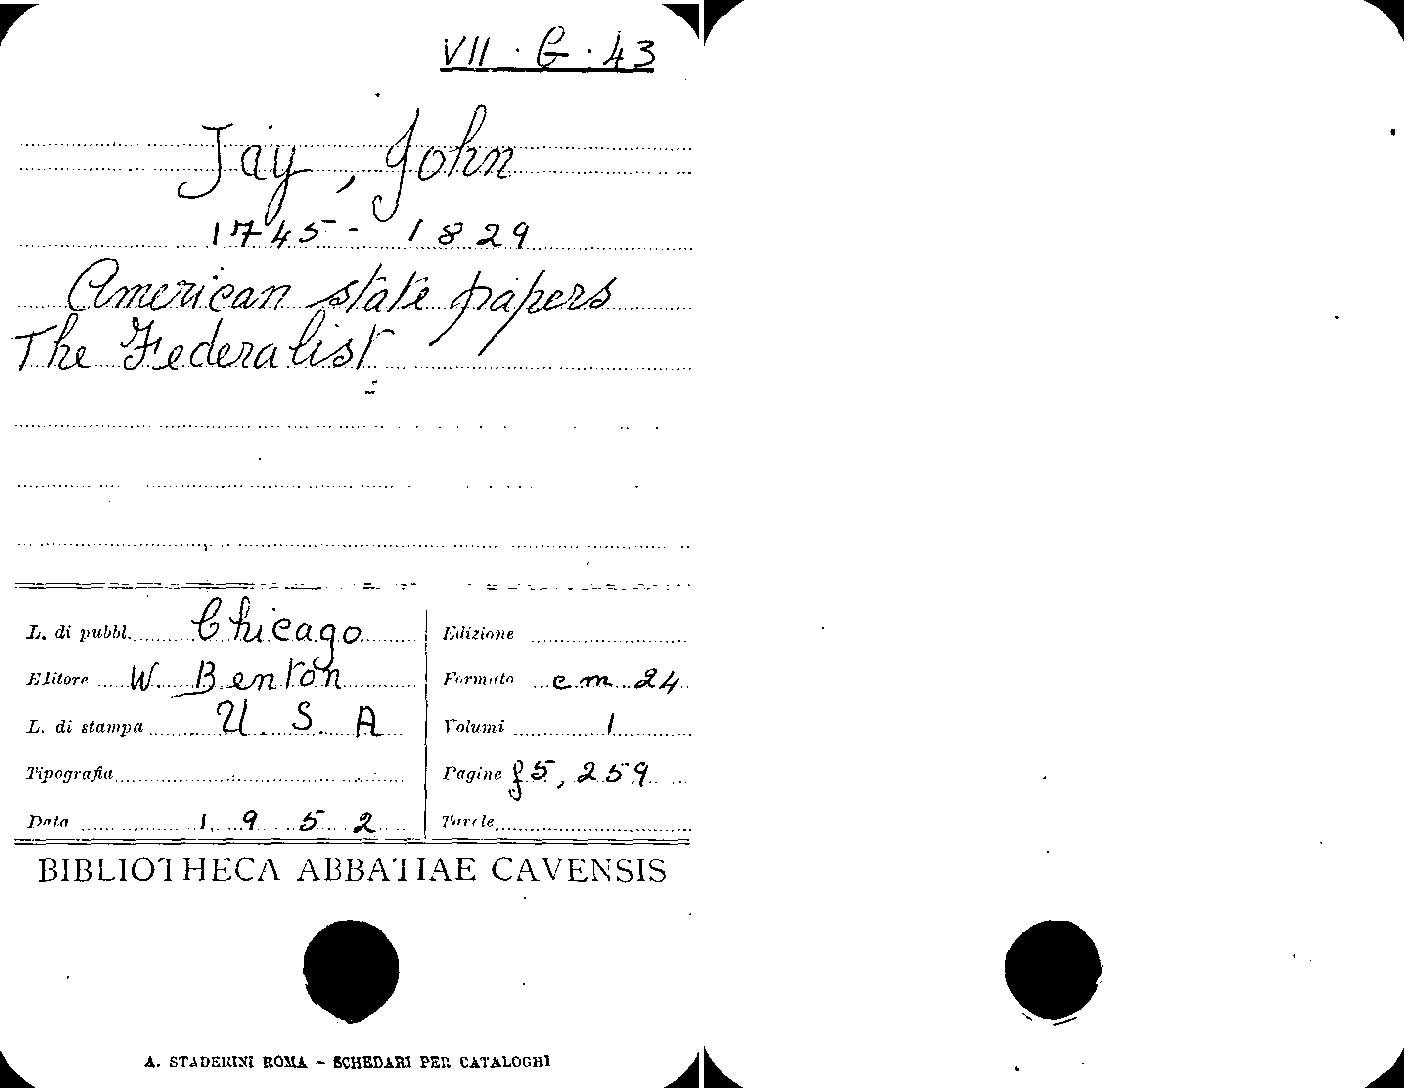 VII . G . 43
Jay, John
1745 - 1829
American state papers
The Federalist
L. di pubbl. Chicago
Editore W. Benton
L. di stampa U. S. A
Tipografia
Data 1952
Edizione
Formato cm 24
Volumi 1
Pagine f5, 259
Tavole
BIBLIOTHECA ABBATIAE CAVENSIS
A. STADERINI ROMA - SCHEDARI PER CATALOGHI